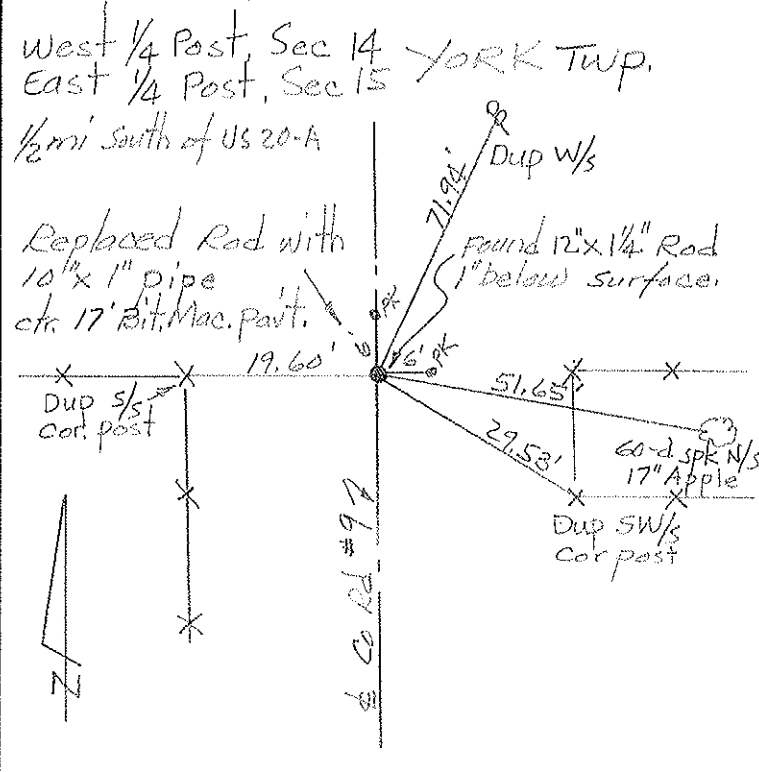 West 1/4 Post, Sec 14 YORK TWP.
East 1/4 Post, Sec 15
1/2 mi South of US 20-A
Dup W/s
71.94'
Replaced Rod with
10"x 1" pipe
ctr. 17' Bit. Mac. pav't.
Found 12"x 1 1/4" Rod
1" below surface.
PK
6'
6'
PK
19.60'
51.65'
29.53'
Dup S/s
Cor. post
60-d spk N/s
17" Apple
Dup SW/s
Cor post
℄ Co Rd #9
N